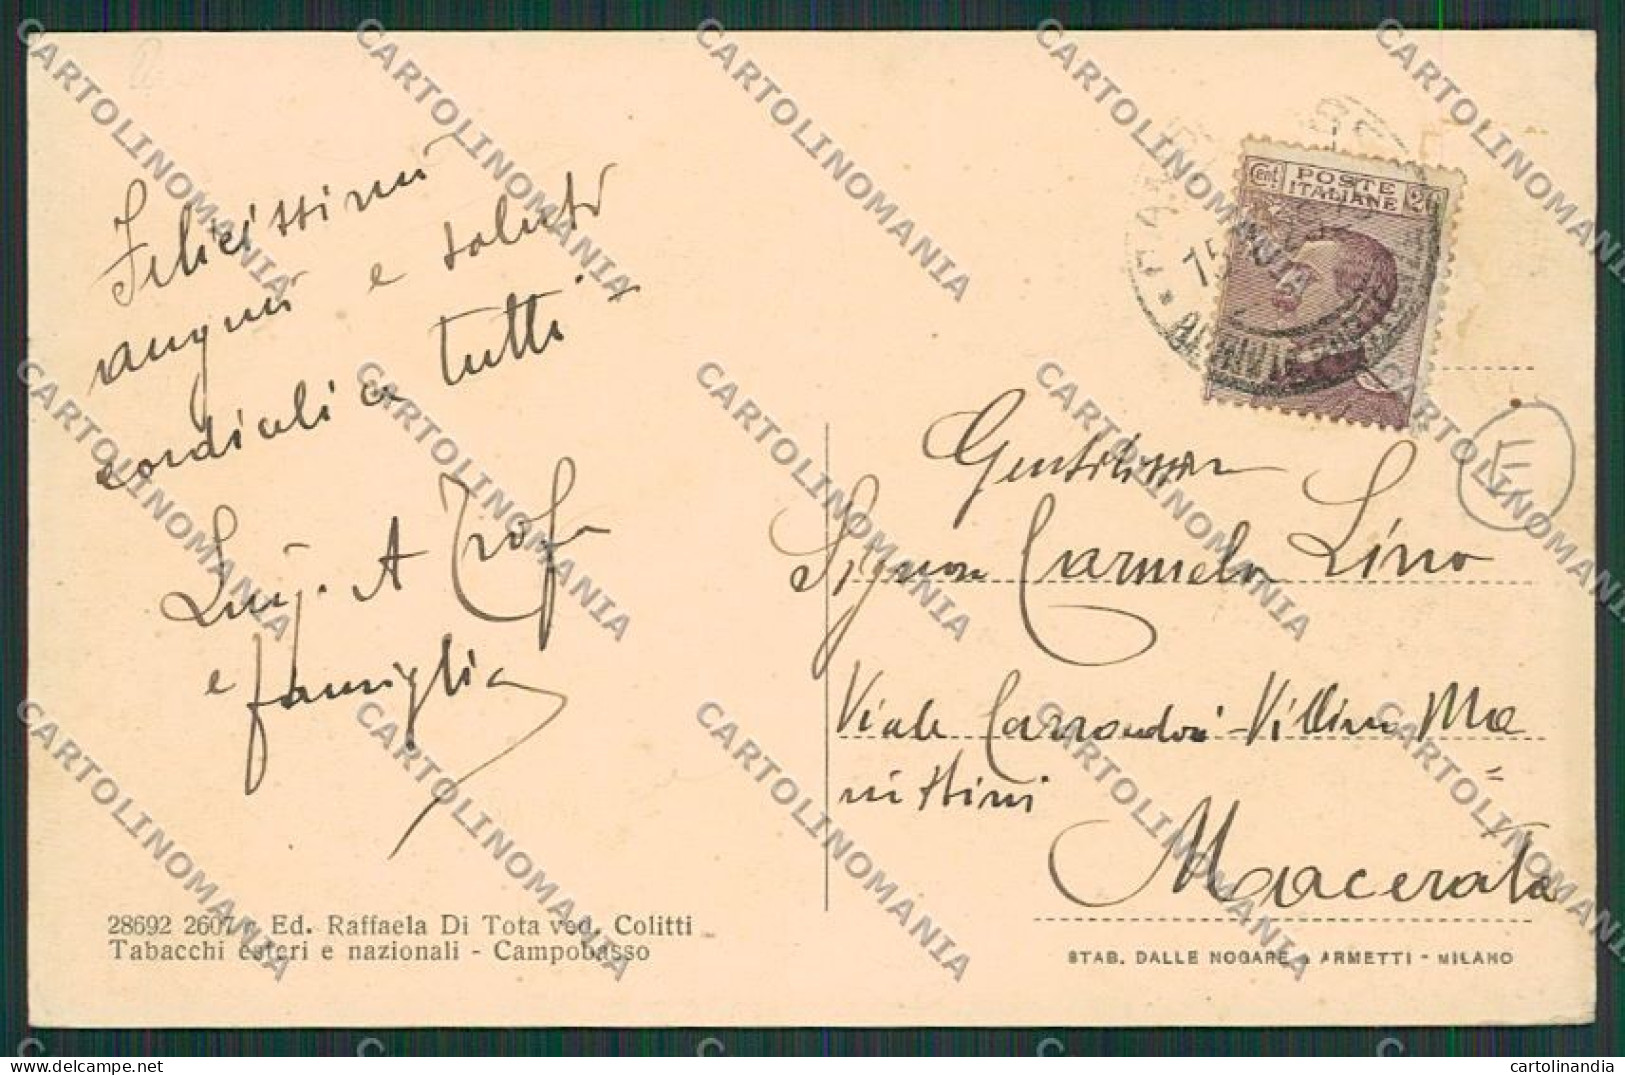 Felicissimi
auguri e saluti
cordiali a tutti
Luigi A Trofa
e famiglia
28692 2607 - Ed. Raffaela Di Tota ved. Colitti
Tabacchi esteri e nazionali - Campobasso
Cent. POSTE ITALIANE 20
15
LT
Gentilissima
Signora Carmela Lino
Viale Carradori - Villino Ma=
nittini
Macerata
STAB. DALLE NOGARE & ARMETTI - MILANO
CARTOLINOMANIA
cartolinandia
delcampe.net